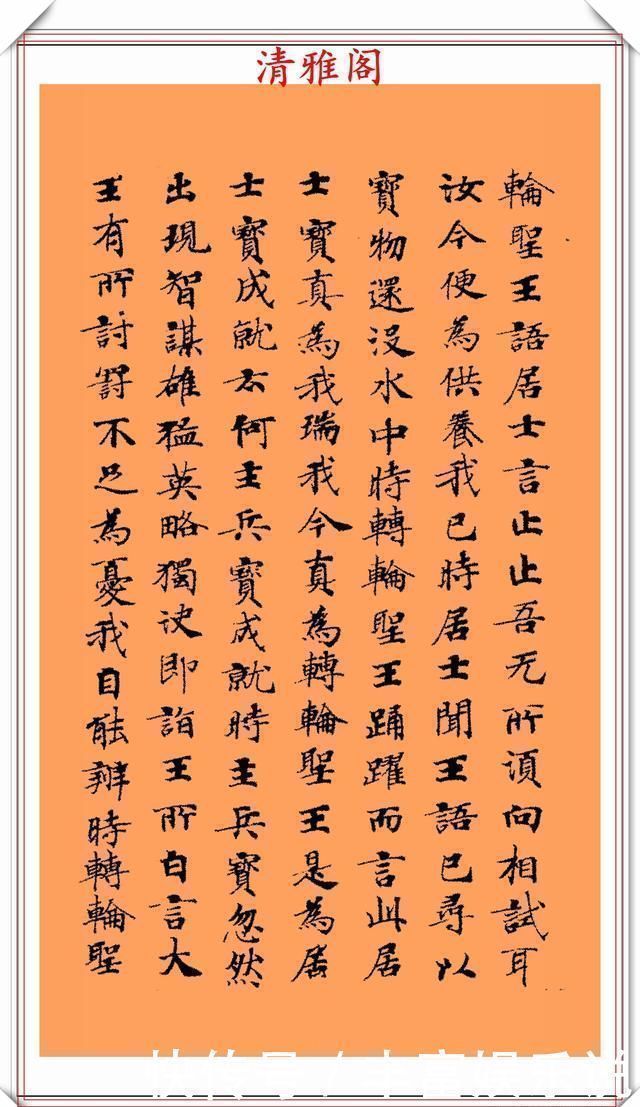 清雅阁
輪聖王語居士言止止吾无所湏向相試耳
汝今便為供養我已時居士聞王語已尋以
寶物還没水中時轉輪聖王踊躍而言此居
士寶真為我瑞我今真為轉輪聖王是為居
士寶成就云何主兵寶成就時主兵寶忽然
出現智謀雄猛英略獨決即詣王所白言大
王有所討罸不足為憂我自能辦時轉輪聖